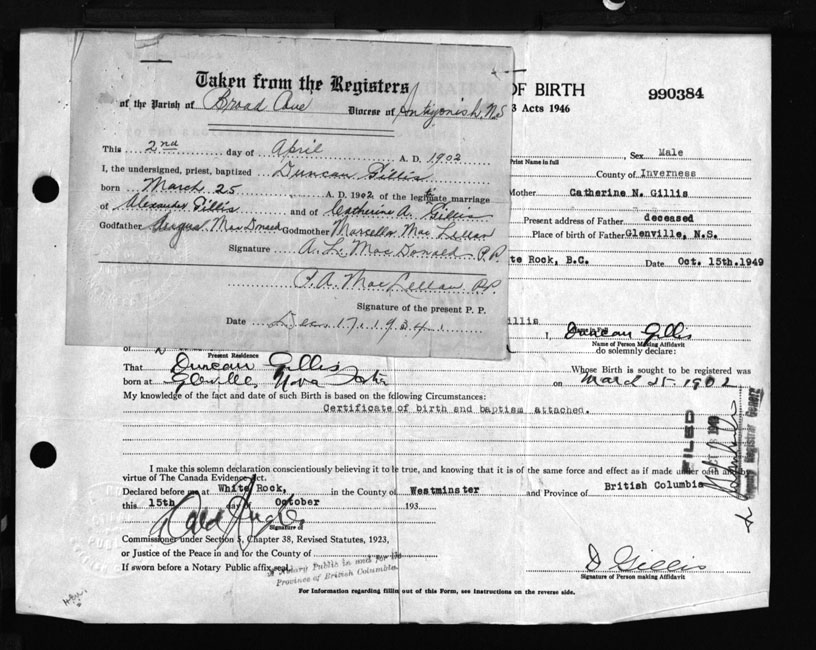 Taken from the Registers
of the Parish of Broad Cove Diocese of Antigonish, N.S
This 2nd day of April A. D. 1902
I, the undersigned, priest, baptized Duncan Gillis
born March 25 A. D. 1902 of the legitimate marriage
of Alexander Gillis and of Catherine A. Gillis
Godfather Angus MacDonald Godmother Marcella Mac Lellan
Signature A. L. MacDonald P.P.
F. A. MacLellan P.P.
Signature of the present P. P.
Date Dec. 17, 1934
OF BIRTH 990384
3 Acts 1946
Sex Male
Print Name in full
County of Inverness
Mother Catherine N. Gillis
Present address of Father deceased
Place of birth of Father Glenville, N.S.
te Rock, B.C. Date Oct. 15th.1949
illis
I, Duncan Gillis
Name of Person Making Affidavit
of
Present Residence
do solemnly declare:
That Duncan Gillis Whose Birth is sought to be registered was
born at Glenville, Nova Scotia on March 25 1902
My knowledge of the fact and date of such Birth is based on the following Circumstances:
Certificate of birth and baptism attached.
FILED
I make this solemn declaration conscientiously believing it to be true, and knowing that it is of the same force and effect as if made under oath and by
virtue of The Canada Evidence Act.
Declared before me at White Rock, in the County of Westminster and Province of British Columbia
this 15th day of October 193
Signature of
Commissioner under Section 5, Chapter 38, Revised Statutes, 1923,
or Justice of the Peace in and for the County of
If sworn before a Notary Public affix seal.
A Notary Public in and for the
Province of British Columbia.
D Gillis
Signature of Person making Affidavit
For Information regarding filling out of this Form, see Instructions on the reverse side.